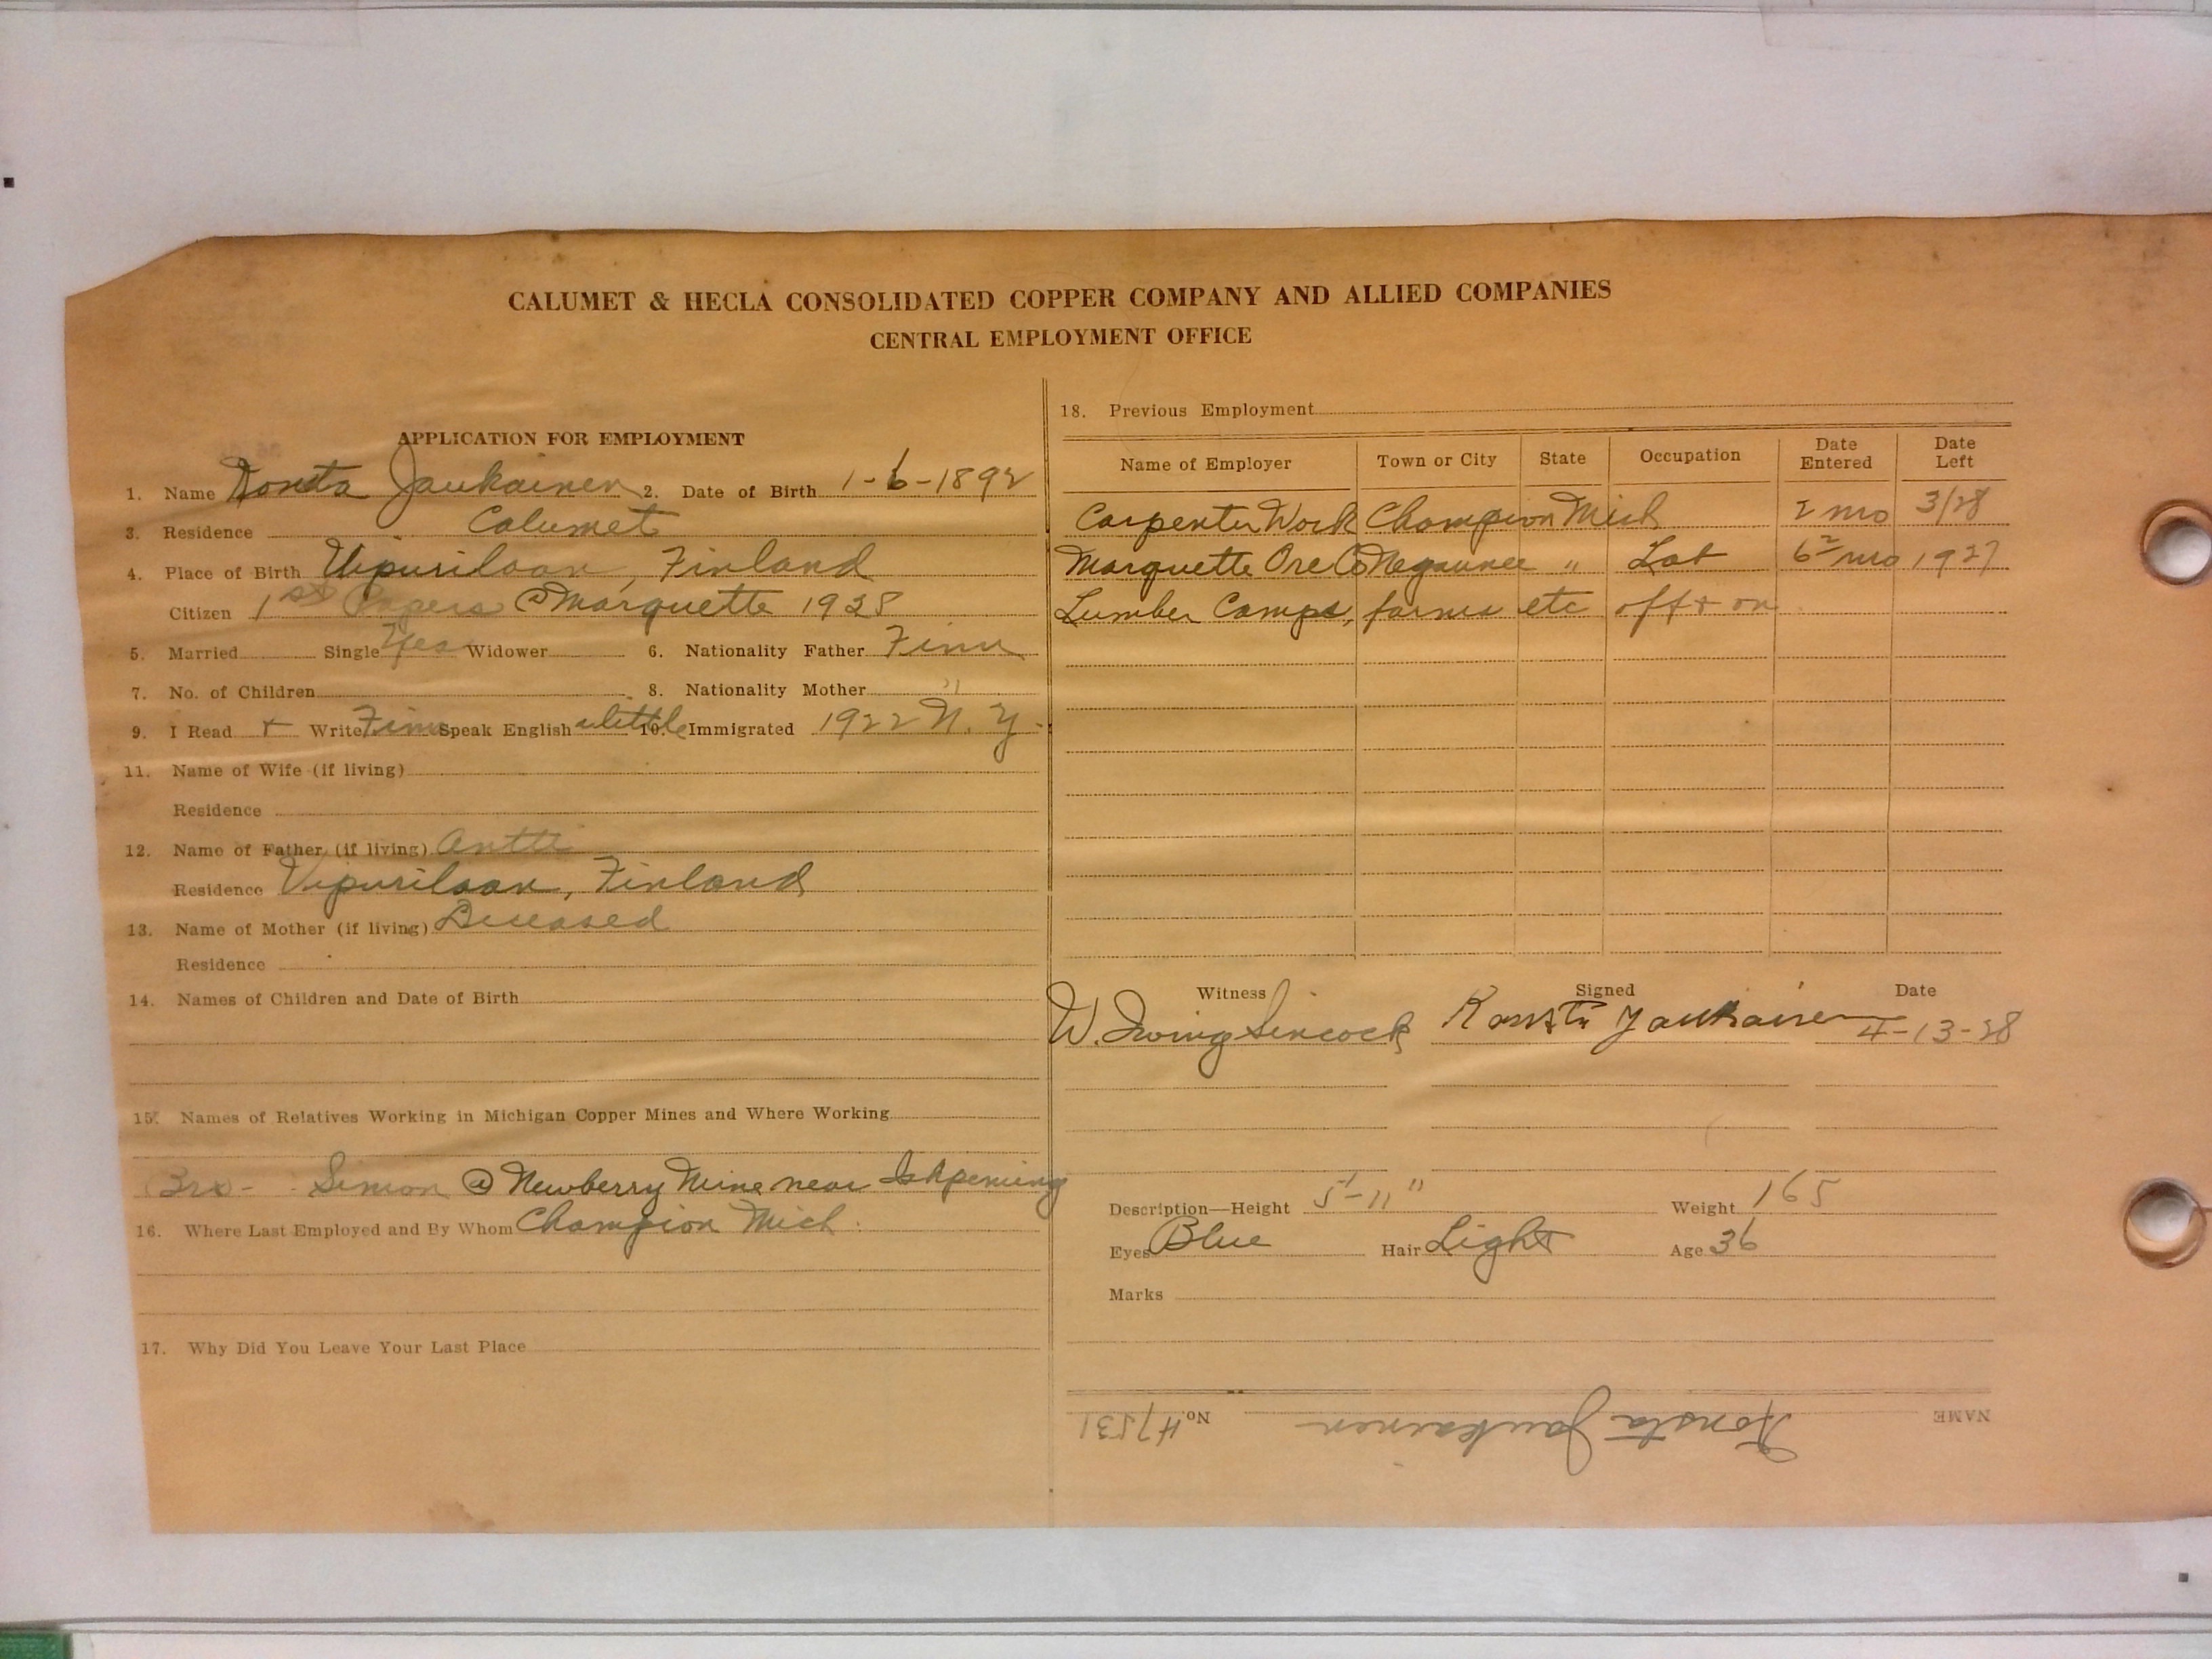 CALUMET & HECLA CONSOLIDATED COPPER COMPANY AND ALLIED COMPANIES
CENTRAL EMPLOYMENT OFFICE
APPLICATION FOR EMPLOYMENT
1. Name Konsta Jaukainen 2. Date of Birth 1-6-1892
3. Residence Calumet
4. Place of Birth Vipurilaan, Finland
Citizen 1st Papers @ Marquette 1925
5. Married Single Yes Widower 6. Nationality Father Finn
7. No. of Children 8. Nationality Mother "
9. I Read + Write Finn Speak English a little 10. Immigrated 1922 N. Y.
11. Name of Wife (if living)
Residence
12. Name of Father (if living) Antti
Residence Vipurilaan, Finland
13. Name of Mother (if living) Deceased
Residence
14. Names of Children and Date of Birth
15. Names of Relatives Working in Michigan Copper Mines and Where Working
Bro- Simon @ Newberry Mine near Ishpeming
16. Where Last Employed and By Whom Champion Mich.
17. Why Did You Leave Your Last Place
18. Previous Employment
Name of Employer Town or City State Occupation Date Entered Date Left
Carpenter Work Champion Mich 2 mo 3/28
Marquette Ore Co Negaunee " Lab mo 1927
Lumber Camps, farms etc off + on
Witness Signed Date
W. Irving Sincock Konsta Jaukainen 4-13-28
Description—Height 5'-11" Weight 165
Eyes Blue Hair Light Age 36
Marks
NAME Konsta Jaukainen No. H7531